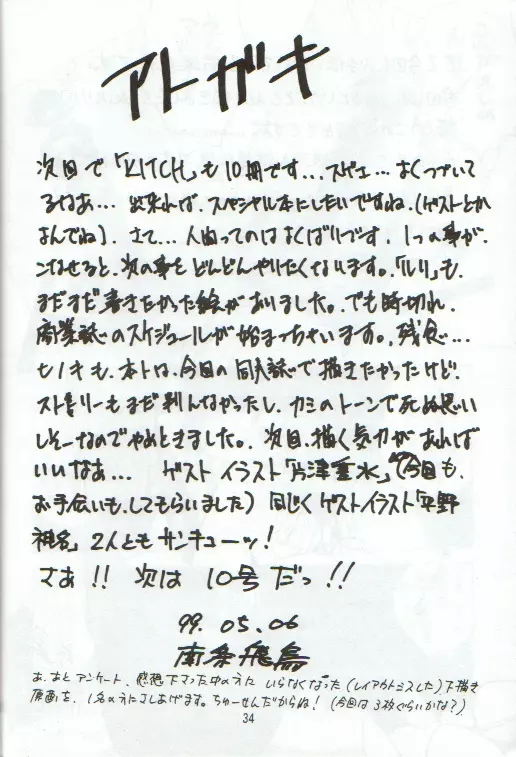 アトガキ
次回で「KITCH」も10冊です...スゲェ...よくつづいて
るなあ... 出来れば、スペシャル本にしたいですね、(ゲストとか
よんでね)、さて... 人間ってのはよくばりです、1つの事が、
こなせると、次の事をどんどんやりたくなります。「ルリ」も、
まだまだ書きたかった絵がありました。でも時切れ、
商業誌のスケジュールが始まっちゃいます。残念...
ヒノキも、本トは、今回の同人誌で描きたかったけど!
ストーリーもまだ判んなかったし、カミのトーンで死ぬ思い
しそーなのでやめときました。次回、描く気力があれば
いいなあ... ゲストイラスト「片津重水」(今回も、
お手伝いも、してもらいました) 同じくゲストイラスト「平野
神名」2人ともサンキューーッ!
さあ!! 次は 10号だっ!!
99.05.06
南条飛鳥
あ、あとアンケート、感想下さった中の方に いらなくなった(レイアウトミスした)下描き
原画を、1名の方にさしあげます。ちゅーせんだからね! (今回は3枚ぐらいかな?)
34